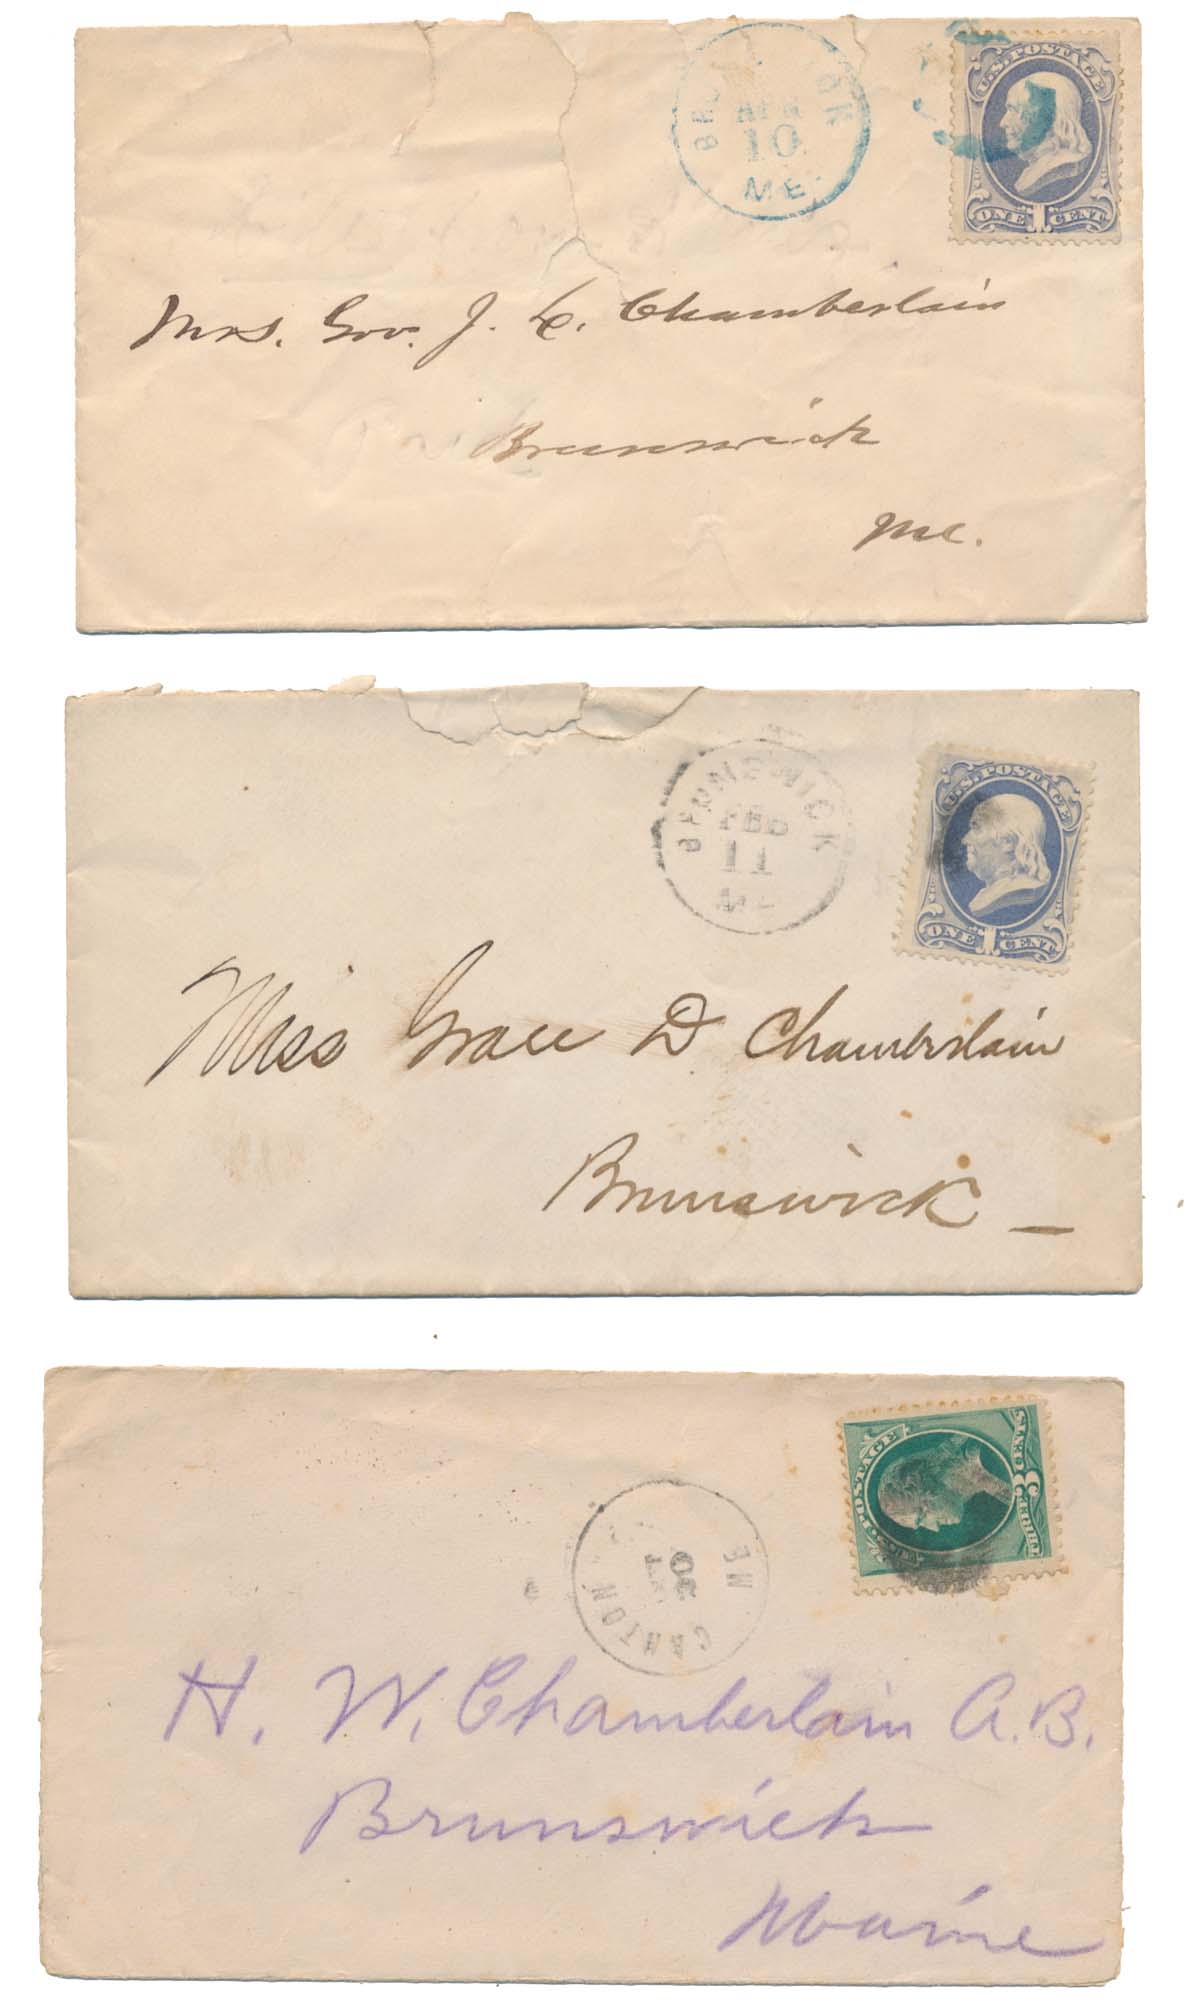 APR
10
ME.
U.S. POSTAGE
ONE 1 CENT
Mrs. Gov. J. L. Chamberlain
Brunswick
Me.
BRUNSWICK
FEB
11
ME
U.S. POSTAGE
ONE 1 CENT
Miss Grace D Chamberlain
Brunswick –
CANTON
ME
U.S. POSTAGE
THREE 3 CENTS
H. W. Chamberlain A.B.
Brunswick
Maine